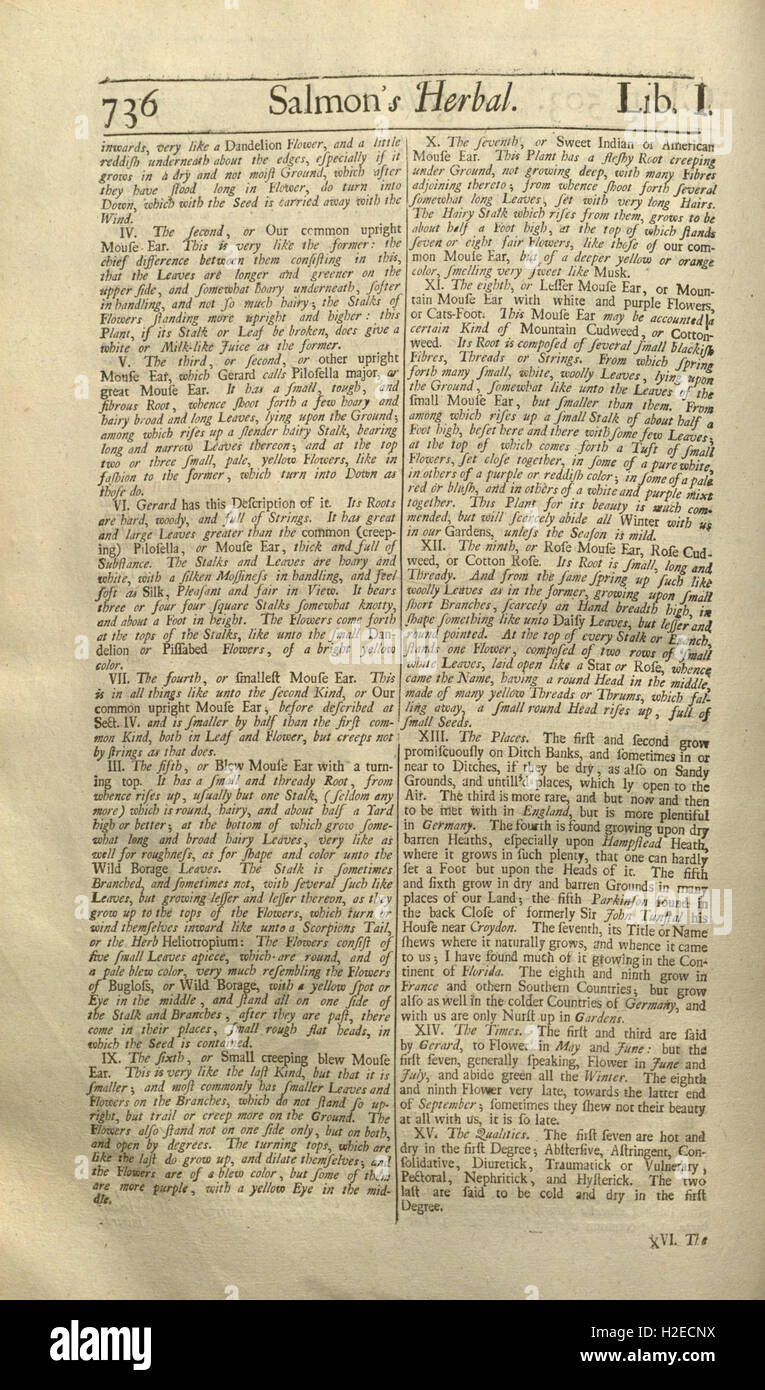 736 Salmon's Herbal. Lib. I.
inwards, very like a Dandelion Flower, and a little
reddiſh underneath about the edges, eſpecially if it
grows in a dry and not moiſt Ground, which after
they have ſtood long in Flower, do turn into
Down, which with the Seed is carried away with the
Wind.
IV. The ſecond, or Our common upright
Mouſe-Ear. This is very like the former: the
chief difference between them conſiſting in this,
that the Leaves are longer and greener on the
upper ſide, and ſomewhat hoary underneath, ſofter
in handling, and not ſo much hairy; the Stalks of
Flowers ſtanding more upright and higher: this
Plant, if its Stalk or Leaf be broken, does give a
white or Milk-like Juice as the former.
V. The third, or ſecond, or other upright
Mouſe Ear, which Gerard calls Piloſella major, or
great Mouſe Ear. It has a ſmall, tough, and
fibrous Root, whence ſhoot forth a few hoary and
hairy broad and long Leaves, lying upon the Ground;
among which riſes up a ſlender hairy Stalk, bearing
long and narrow Leaves thereon; and at the top
two or three ſmall, pale, yellow Flowers, like in
faſhion to the former, which turn into Down as
thoſe do.
VI. Gerard has this Deſcription of it. Its Roots
are hard, woody, and full of Strings. It has great
and large Leaves greater than the common (creep-
ing) Piloſella, or Mouſe Ear, thick and full of
Subſtance. The Stalks and Leaves are hoary and
white, with a ſilken Moſſineſs in handling, and feel
ſoft as Silk, Pleaſant and fair in View. It bears
three or four four ſquare Stalks ſomewhat knotty,
and about a Foot in height. The Flowers come forth
at the tops of the Stalks, like unto the ſmall Dan-
delion or Piſſabed Flowers, of a bright yellow
color.
VII. The fourth, or ſmalleſt Mouſe Ear. This
is in all things like unto the ſecond Kind, or Our
common upright Mouſe Ear; before deſcribed at
Sect. IV. and is ſmaller by half than the firſt com-
mon Kind, both in Leaf and Flower, but creeps not
by ſtrings as that does.
III. The fifth, or Blew Mouſe Ear with a turn-
ing top. It has a ſmall and thready Root, from
whence riſes up, uſually but one Stalk, (ſeldom any
more) which is round, hairy, and about half a Yard
high or better; at the bottom of which grow ſome-
what long and broad hairy Leaves, very like as
well for roughneſs, as for ſhape and color unto the
Wild Borage Leaves. The Stalk is ſometimes
Branched, and ſometimes not, with ſeveral ſuch like
Leaves, but growing leſſer and leſſer thereon, as they
grow up to the tops of the Flowers, which turn or
wind themſelves inward like unto a Scorpions Tail,
or the Herb Heliotropium: The Flowers conſiſt of
five ſmall Leaves apiece, which are round, and of
a pale blew color, very much reſembling the Flowers
of Bugloſs, or Wild Borage, with a yellow ſpot or
Eye in the middle, and ſtand all on one ſide of
the Stalk and Branches, after they are paſt, there
come in their places, ſmall rough flat heads, in
which the Seed is contained.
IX. The ſixth, or Small creeping blew Mouſe
Ear. This is very like the laſt Kind, but that it is
ſmaller; and moſt commonly has ſmaller Leaves and
Flowers on the Branches, which do not ſtand ſo up-
right, but trail or creep more on the Ground. The
Flowers alſo ſtand not on one ſide only, but on both,
and open by degrees. The turning tops, which are
like the laſt do grow up, and dilate themſelves; and
the Flowers are of a blew color, but ſome of them
are more purple, with a yellow Eye in the mid-
dle.
X. The ſeventh, or Sweet Indian or American
Mouſe Ear. This Plant has a fleſhy Root creeping
under Ground, not growing deep, with many Fibres
adjoining thereto; from whence ſhoot forth ſeveral
ſomewhat long Leaves, ſet with very long Hairs.
The Hairy Stalk which riſes from them, grows to be
about half a Foot high, at the top of which ſtands
ſeven or eight fair Flowers, like thoſe of our com-
mon Mouſe Ear, but of a deeper yellow or orange
color, ſmelling very ſweet like Musk.
XI. The eighth, or Leſſer Mouſe Ear, or Moun-
tain Mouſe Ear with white and purple Flowers,
or Cats-Foot. This Mouſe Ear may be accounted a
certain Kind of Mountain Cudweed, or Cotton-
weed. Its Root is compoſed of ſeveral ſmall blackiſh
Fibres, Threads or Strings. From which ſpring
forth many ſmall, white, woolly Leaves, lying upon
the Ground, ſomewhat like unto the Leaves of the
ſmall Mouſe Ear, but ſmaller than them. From
among which riſes up a ſmall Stalk of about half a
Foot high, beſet here and there with ſome few Leaves;
at the top of which comes forth a Tuft of ſmall
Flowers, ſet cloſe together, in ſome of a pure white,
in others of a purple or reddiſh color; in ſome of a pale
red or bluſh, and in others of a white and purple mixt
together. This Plant for its beauty is much com-
mended, but will ſcarcely abide all Winter with us
in our Gardens, unleſs the Seaſon is mild.
XII. The ninth, or Roſe Mouſe Ear, Roſe Cud-
weed, or Cotton Roſe. Its Root is ſmall, long and
Thready. And from the ſame ſpring up ſuch like
woolly Leaves as in the former, growing upon ſmall
ſhort Branches, ſcarcely an Hand breadth high, in
ſhape ſomething like unto Daiſy Leaves, but leſſer and
round pointed. At the top of every Stalk or Branch,
ſtands one Flower, compoſed of two rows of ſmall
white Leaves, laid open like a Star or Roſe, whence
came the Name, having a round Head in the middle,
made of many yellow Threads or Thrums, which fal-
ling away, a ſmall round Head riſes up, full of
ſmall Seeds.
XIII. The Places. The firſt and ſecond grow
promiſcuouſly on Ditch Banks, and ſometimes in or
near to Ditches, if they be dry, as alſo on Sandy
Grounds, and untill'd places, which ly open to the
Air. The third is more rare, and but now and then
to be met with in England, but is more plentiful
in Germany. The fourth is found growing upon dry
barren Heaths, eſpecially upon Hampſtead Heath,
where it grows in ſuch plenty, that one can hardly
ſet a Foot but upon the Heads of it. The fifth
and ſixth grow in dry and barren Grounds in many
places of our Land; the fifth Parkinſon found in
the back Cloſe of formerly Sir John Tunſtal his
Houſe near Croydon. The ſeventh, its Title or Name
ſhews where it naturally grows, and whence it came
to us; I have found much of it growing in the Con-
tinent of Florida. The eighth and ninth grow in
France and othern Southern Countries; but grow
alſo as well in the colder Countries of Germany, and
with us are only Nurſt up in Gardens.
XIV. The Times. The firſt and third are ſaid
by Gerard, to Flower in May and June: but the
firſt ſeven, generally ſpeaking, Flower in June and
July, and abide green all the Winter. The eighth
and ninth Flower very late, towards the latter end
of September; ſometimes they ſhew not their beauty
at all with us, it is ſo late.
XV. The Qualities. The firſt ſeven are hot and
dry in the firſt Degree; Abſterſive, Aſtringent, Con-
ſolidative, Diuretick, Traumatick or Vulnerary,
Pectoral, Nephritick, and Hyſterick. The two
laſt are ſaid to be cold and dry in the firſt
Degree.
XVI. The
alamy
Image ID: H2ECNX
www.alamy.com